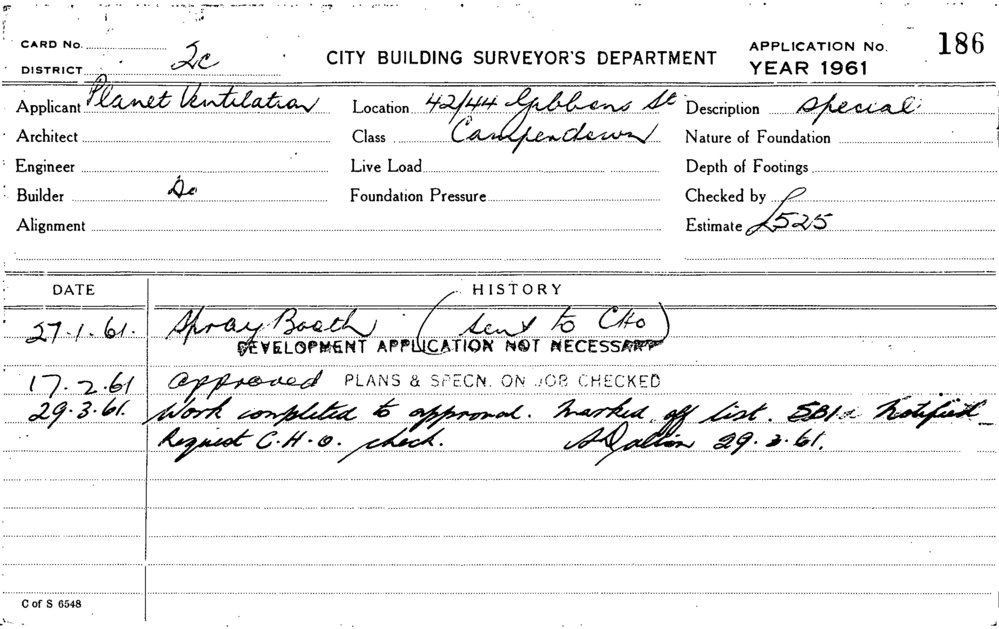 CARD No.
CITY BUILDING SURVEYOR'S DEPARTMENT
APPLICATION No. 186
DISTRICT 2c
YEAR 1961
Applicant Planet Ventilation
Location 42/44 Gibbens St
Description Special
Architect
Class Camperdown
Nature of Foundation
Engineer
Live Load
Depth of Footings
Builder Do
Foundation Pressure
Checked by
Alignment
Estimate £525
DATE
HISTORY
27.1.61. Spray Booth (Sent to CHO)
DEVELOPMENT APPLICATION NOT NECESSARY
17.2.61 approved PLANS & SPECN. ON JOB CHECKED
29.3.61. Work completed to approval. Marked off list. Notified
Request C.H.O. check. Dalton 29.3.61.
C of S 6548